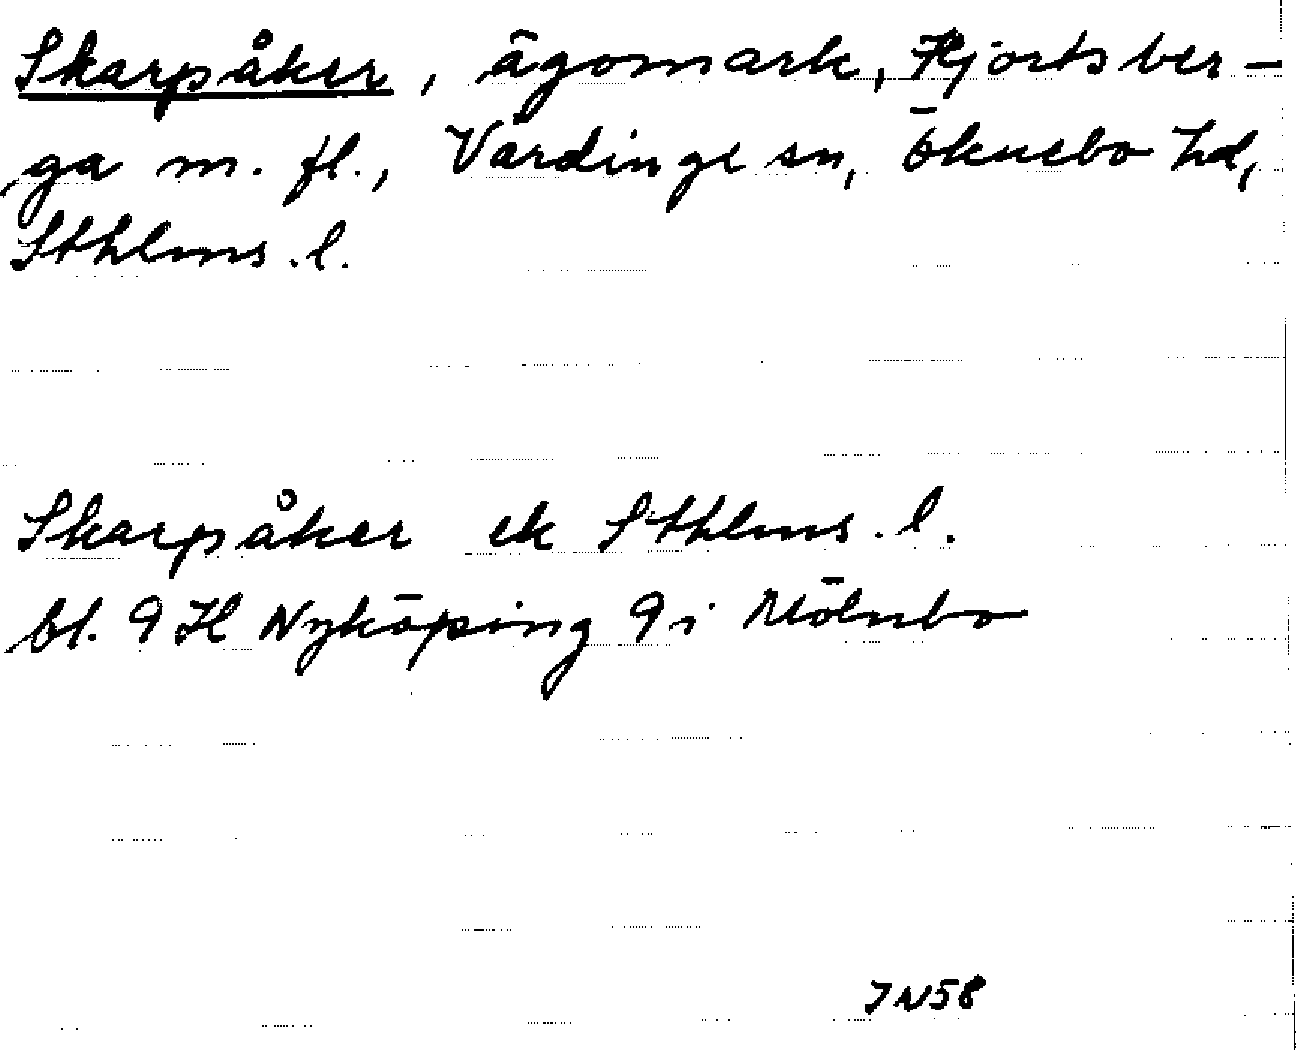 Skarpåker, ägomark, Hjortsber-
ga m. fl., Vårdinge sn, Öknebo hd,
Sthlms. l.
Skarpåker ek Sthlms. l.
bl. 9 H Nyköping 9 i Mölnbo
JN58